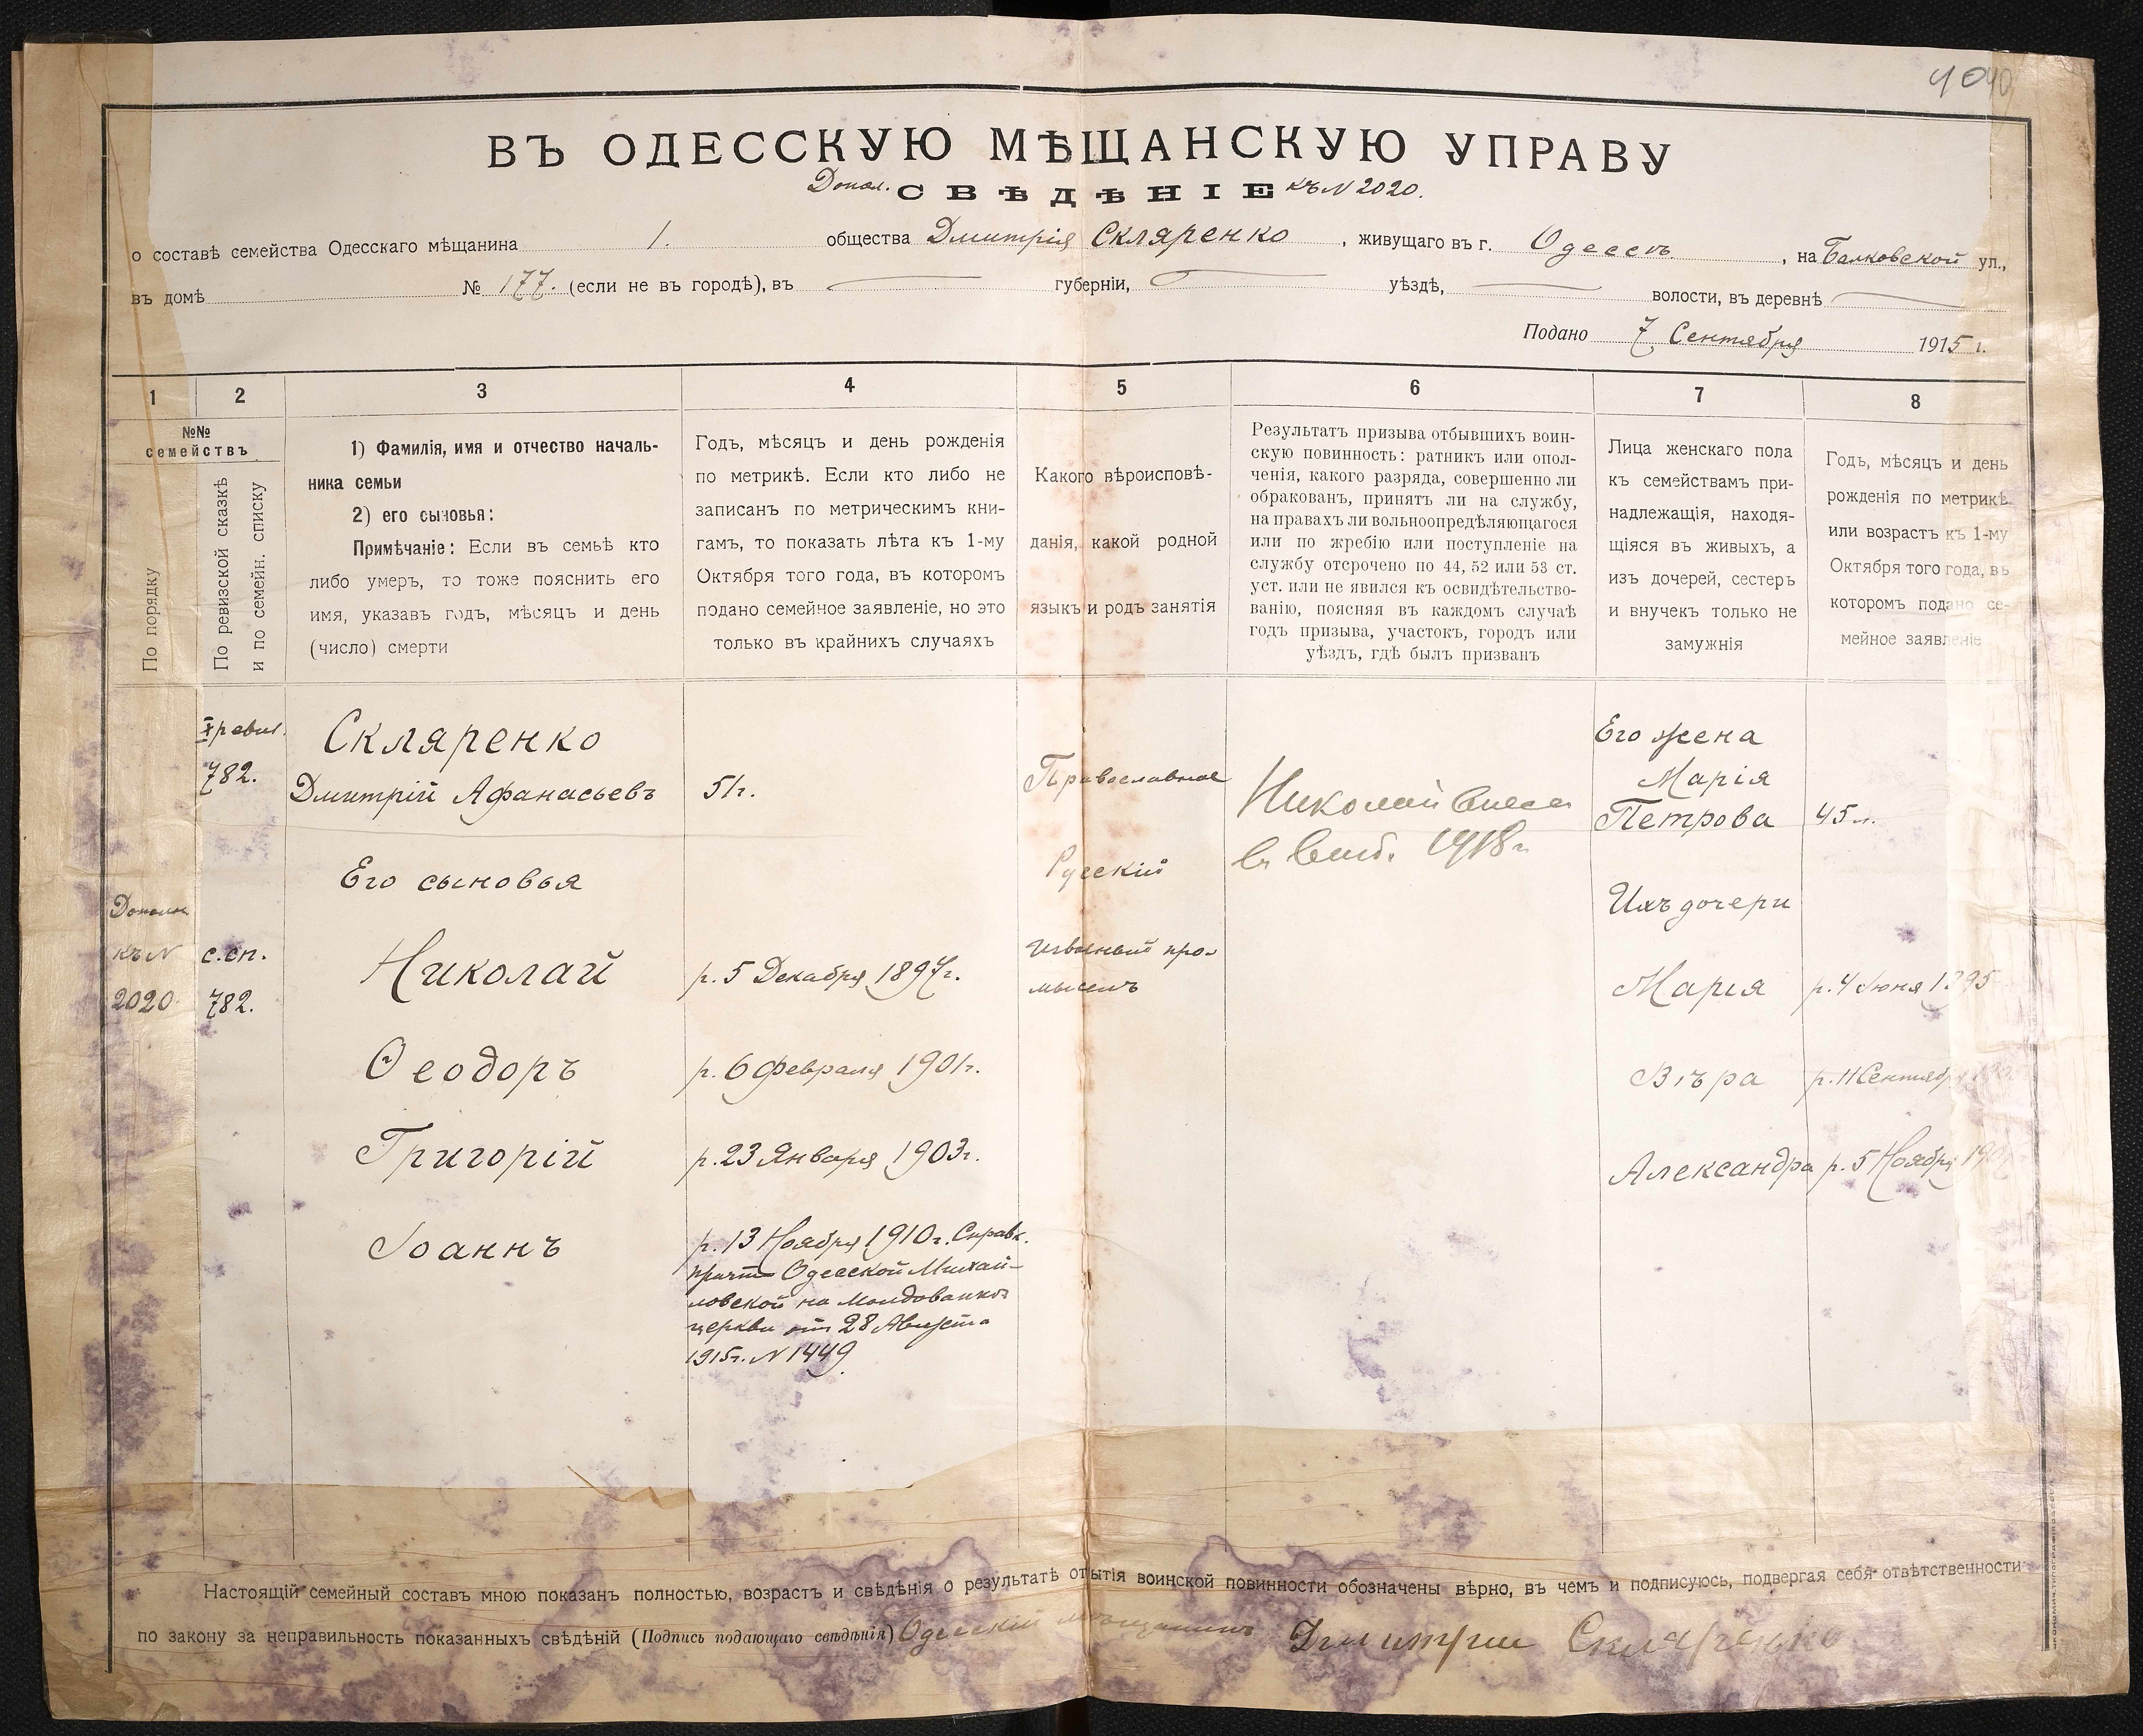 4040
ВЪ ОДЕССКУЮ МѢЩАНСКУЮ УПРАВУ
Допол. СВѢДѢНІЕ къ N 2020.
о составѣ семейства Одесскаго мѣщанина 1. общества Дмитрія Скляренко, живущаго въ г. Одессѣ, на Балковской ул.,
въ домѣ № 177. (если не въ городѣ), въ губерніи, уѣздѣ, волости, въ деревнѣ
Подано 7 Сентября 1915 г.
1 2 3 4 5 6 7 8
№№
семействъ
По порядку
По ревизской сказкѣ
и по семейн. списку
1) Фамилія, имя и отчество началь-
ника семьи
2) его сыновья:
Примѣчаніе: Если въ семьѣ кто
либо умеръ, то тоже пояснить его
имя, указавъ годъ, мѣсяцъ и день
(число) смерти
Годъ, мѣсяцъ и день рожденія
по метрикѣ. Если кто либо не
записанъ по метрическимъ кни-
гамъ, то показать лѣта къ 1-му
Октября того года, въ которомъ
подано семейное заявленіе, но это
только въ крайнихъ случаяхъ
Какого вѣроисповѣ-
данія, какой родной
языкъ и родъ занятія
Результатъ призыва отбывшихъ воин-
скую повинность: ратникъ или опол-
ченія, какого разряда, совершенно ли
обракованъ, принятъ ли на службу,
на правахъ ли вольноопредѣляющагося
или по жребію или поступленіе на
службу отсрочено по 44, 52 или 53 ст.
уст. или не явился къ освидѣтельство-
ванію, поясняя въ каждомъ случаѣ
годъ призыва, участокъ, городъ или
уѣздъ, гдѣ былъ призванъ
Лица женскаго пола
къ семействамъ при-
надлежащія, находя-
щіяся въ живыхъ, а
изъ дочерей, сестеръ
и внучекъ только не
замужнія
Годъ, мѣсяцъ и день
рожденія по метрикѣ
или возрастъ къ 1-му
Октября того года, въ
которомъ подано се-
мейное заявленіе
Дополн.
къ N
2020
X ревиз.
782.
с.сп.
782.
Скляренко
Дмитрій Афанасьевъ 51 г.
Его сыновья
Николай р. 5 Декабря 1897 г.
Ѳеодоръ р. 6 Февраля 1901 г.
Григорій р. 23 Января 1903 г.
Іоаннъ р. 13 Ноября 1910 г. Справк.
причта Одесской Михай-
ловской на Молдованкѣ
церкви отъ 28 Августа
1915 г. N 1449
Православное
Русскій
Извозный про-
мыселъ
Николай
1918 г.
Его жена
Марія
Петрова 45 л.
Ихъ дочери
Марія р. 4 Іюня 1895
Вѣра р. 11 Сентябр
Александра р. 5 Ноября
Настоящій семейный составъ мною показанъ полностью, возрастъ и свѣдѣнія о результатѣ отбытія воинской повинности обозначены вѣрно, въ чемъ и подписуюсь, подвергая себя отвѣтственности
по закону за неправильность показанныхъ свѣдѣній (Подпись подающаго свѣдѣнія) Одесскій мѣщанинъ Дмитрии Скляренко